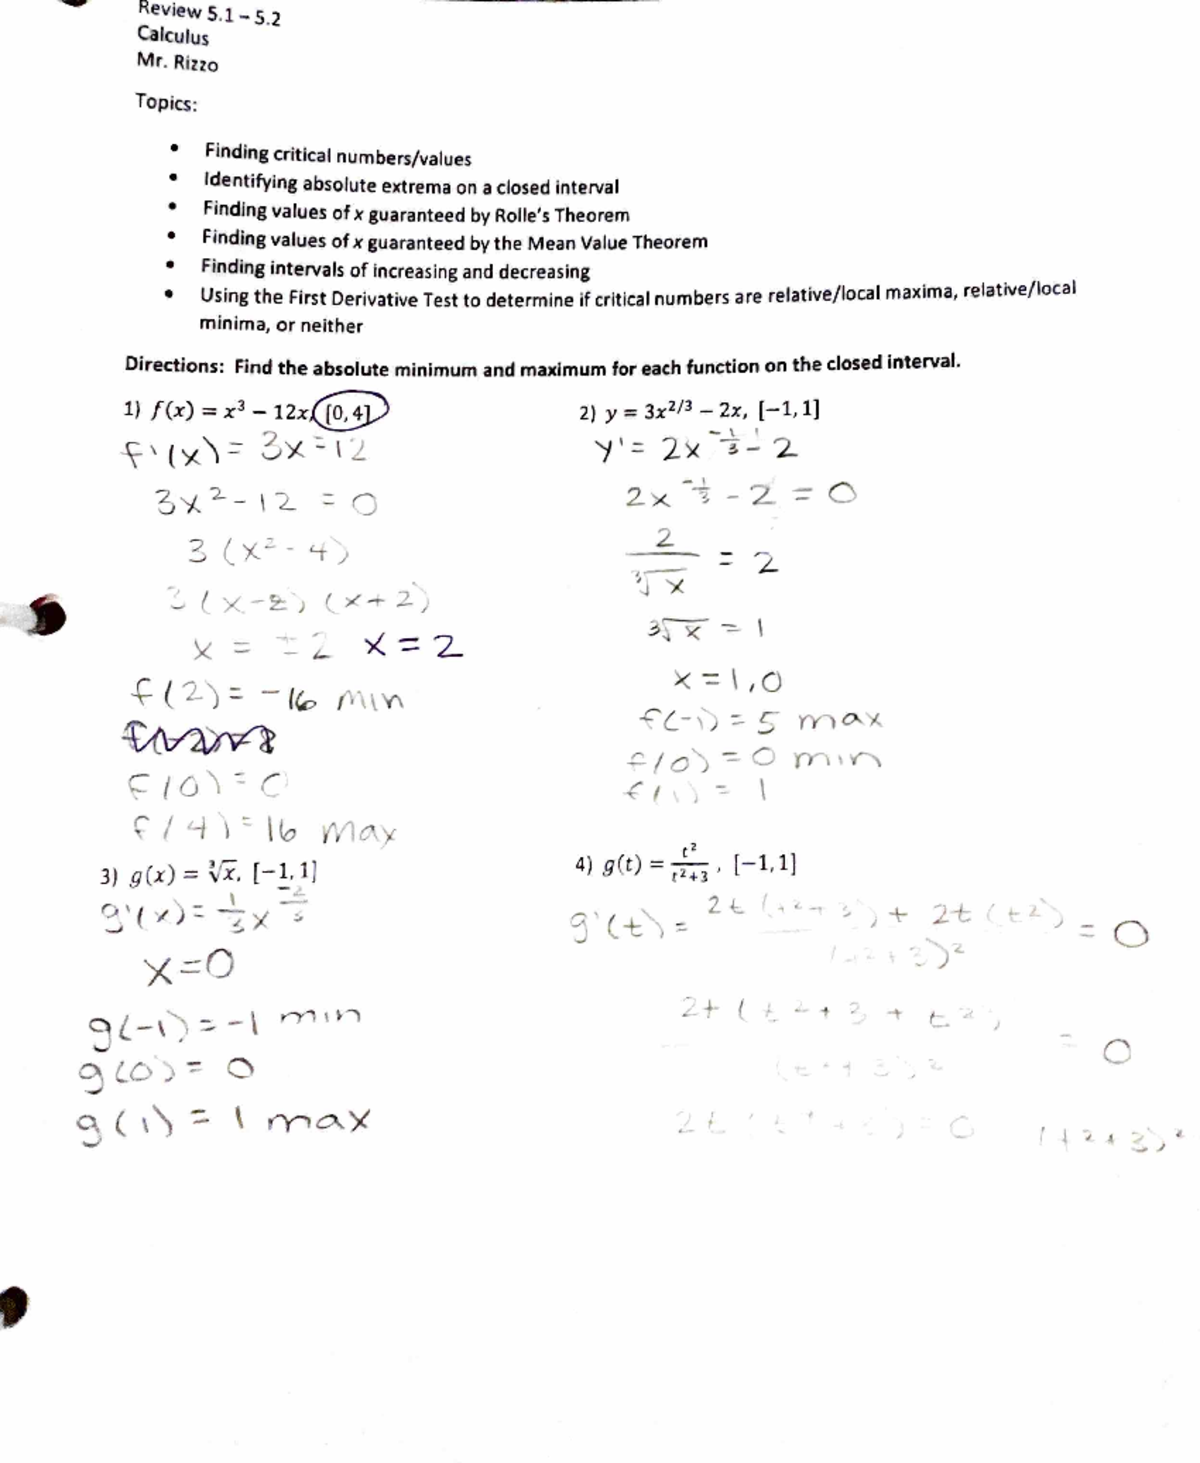 Review 5.1 – 5.2
Calculus
Mr. Rizzo
Topics:
• Finding critical numbers/values
• Identifying absolute extrema on a closed interval
• Finding values of x guaranteed by Rolle's Theorem
• Finding values of x guaranteed by the Mean Value Theorem
• Finding intervals of increasing and decreasing
• Using the First Derivative Test to determine if critical numbers are relative/local maxima, relative/local
minima, or neither
Directions: Find the absolute minimum and maximum for each function on the closed interval.
1) f(x) = x³ – 12x, [0, 4]
f'(x) = 3x = 12
3x² - 12 = 0
3(x² - 4)
3(x-2)(x+2)
x = ±2 x = 2
f(2) = -16 min
f(0) = 0
f(4) = 16 max
2) y = 3x^{2/3} – 2x, [−1, 1]
y' = 2x^{-1/3} - 2
2x^{-1/3} - 2 = 0
2/∛x = 2
∛x = 1
x = 1, 0
f(-1) = 5 max
f(0) = 0 min
f(1) = 1
3) g(x) = ∛x, [−1, 1]
g'(x) = 1/3 x^{-2/3}
x = 0
g(-1) = -1 min
g(0) = 0
g(1) = 1 max
4) g(t) = t²/(t²+3), [−1, 1]
g'(t) = 2t(t²+3) + 2t(t²) / (t²+3)² = 0
2t(t²+3+t²) / (t²+3)² = 0
2t = 0 (t²+3)²